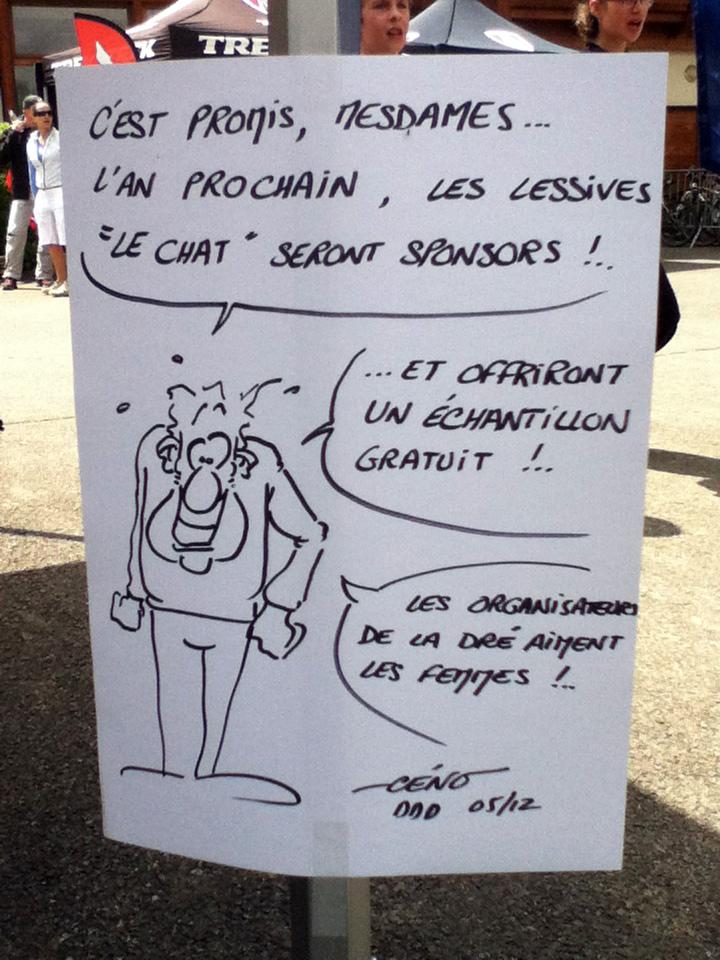 TREK
TRE
C'EST PROMIS, MESDAMES...
L'AN PROCHAIN, LES LESSIVES
"LE CHAT" SERONT SPONSORS !..
...ET OFFRIRONT
UN ÉCHANTILLON
GRATUIT !..
LES ORGANISATEURS
DE LA DRÉ AIMENT
LES FEMMES !..
CÉNO
DDD 05/12